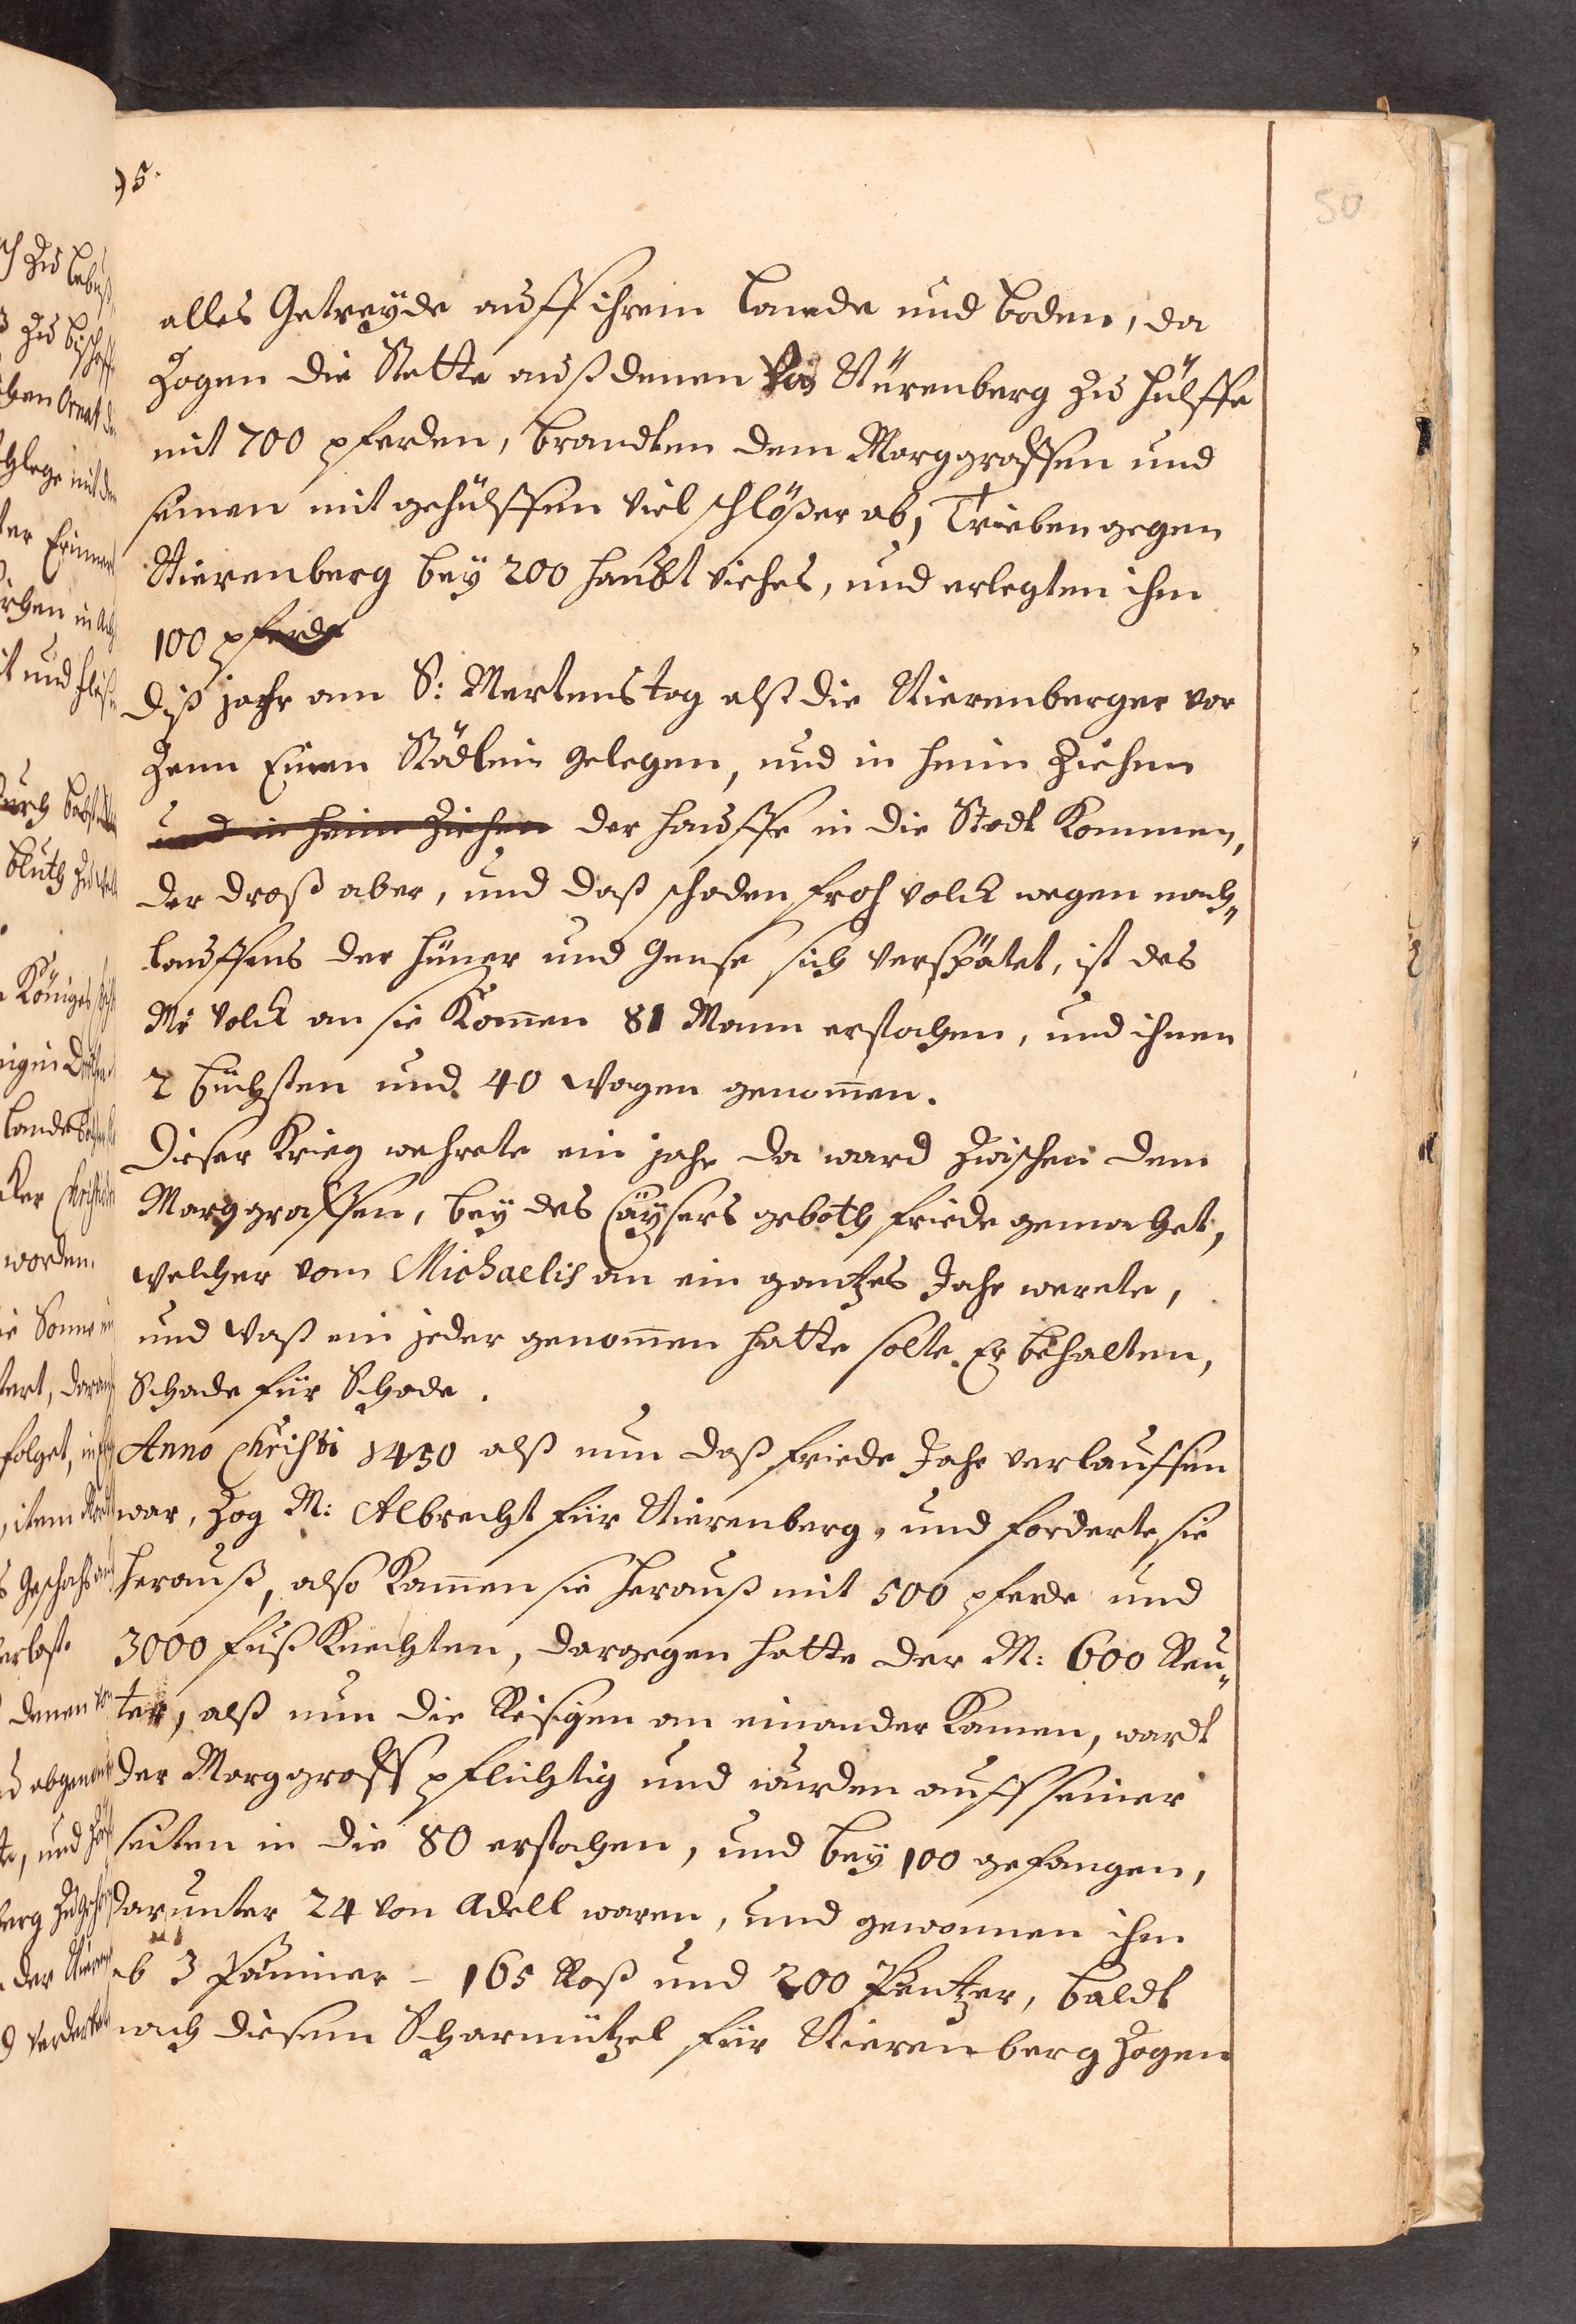 95.
50
alles Getreyde auff ihrem Lande und boden, da
Zogen die Stette auß denen Von Nürenberg zu hülffe
mit 700 pferden, brandten dem Marggraffen und
seinen mit gehülffen viel schlößer ab, Trieben gegen
Nierenberg bey 200 haubt viehes, und erlegten ihm
100 pferde
Diß jahr am S: Mertens tag alß die Nierenberger vor
Zenn Einen Städlein gelegen, und in heim Ziehen
und in heim Ziehen der hauffe in die Stadt Kommen,
der droß aber, und daß schaden froh volck wegen nach„
lauffens der hüner und gense sich verspätet, ist des
M: volck an sie Kom̄en 81 Mann erstochen, und ihnen
2 büchsten und 40 wagen genom̄en.
Dieser Krieg wehrete ein jahr da ward zwischen dem
Marggraffen, bey des Cäÿsers geboth friede gemachet,
welcher vom Michaelis an ein gantzes Jahr werete,
und waß ein jeder genom̄en hatte solte Er behalten,
Schade für Schade.
Anno Christi 1450 alß nun daß friede Jahr verlauffen
war, zog M: Albrecht für Nierenberg, und forderte sie
herauß, also Kam̄en sie herauß mit 500 pferde und
3000 fuß Knechten, dargegen hatte der M: 600 Reu„
ter, alß nun die Reisigen an einander Kamen, wardt
der Marggraff pflichtig und wurden auff seiner
seiten in die 80 erstochen, und bey 100 gefangen,
darunter 24 von Adell waren, und gewonnen ihm
ab 3 Panner - 165 Roß und 200 Pantzer, baldt
nach diesem Scharmützel für Nierenberg Zogen